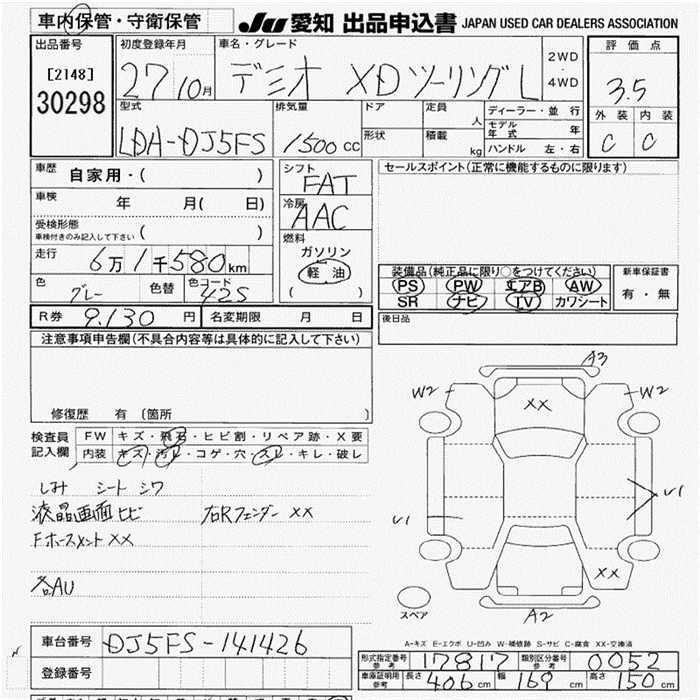 車内保管・守衛保管 JU 愛知 出品申込書 JAPAN USED CAR DEALERS ASSOCIATION
出品番号 初度登録年月 車名・グレード 2WD・4WD 評価点
[2148] 27 10月 デミオ XDツーリングL 3.5
30298 型式 排気量 ドア 定員 人 ディーラー・並行 外装 内装
LDA-DJ5FS 1500cc 形状 積載 kg モデル年式 年 C C
ハンドル 左・右
車歴 自家用・( ) シフト FAT セールスポイント(正常に機能するものに限ります)
車検 年 月( 日) 冷房 AAC
受検形態 車検付きのみ記入して下さい ( ) 燃料 ガソリン
走行 6万1千580km 軽油 装備品(純正品に限り○をつけてください) 新車保証書
PS PW エアB AW 有・無
色 グレー 色替 色コード 42S ( ) SR ナビ TV カワシート
R券 9,130円 名変期限 月 日 後日品
注意事項申告欄(不具合内容等は具体的に記入して下さい)
A3
W2 XX W2
修復歴 有 [箇所 ]
検査員 FW キズ・飛石・ヒビ割・リペア跡・X要
記入欄 内装 キズ・汚レ・コゲ・穴・スレ・キレ・破レ
しみ シート シワ
液晶画面ヒビ 右Rフェンダー XX U1 U1
Fホースメント XX
XX
各AU
スペア A2
A-キズ E-エクボ U-凹み W-補修跡 S-サビ C-腐食 XX-交換済
車台番号 DJ5FS-141426
形式指定番号 参考 17817 類別区分番号 参考 0052
登録番号 車庫証明用 参考 長さ 406cm 幅 169cm 高さ 150cm